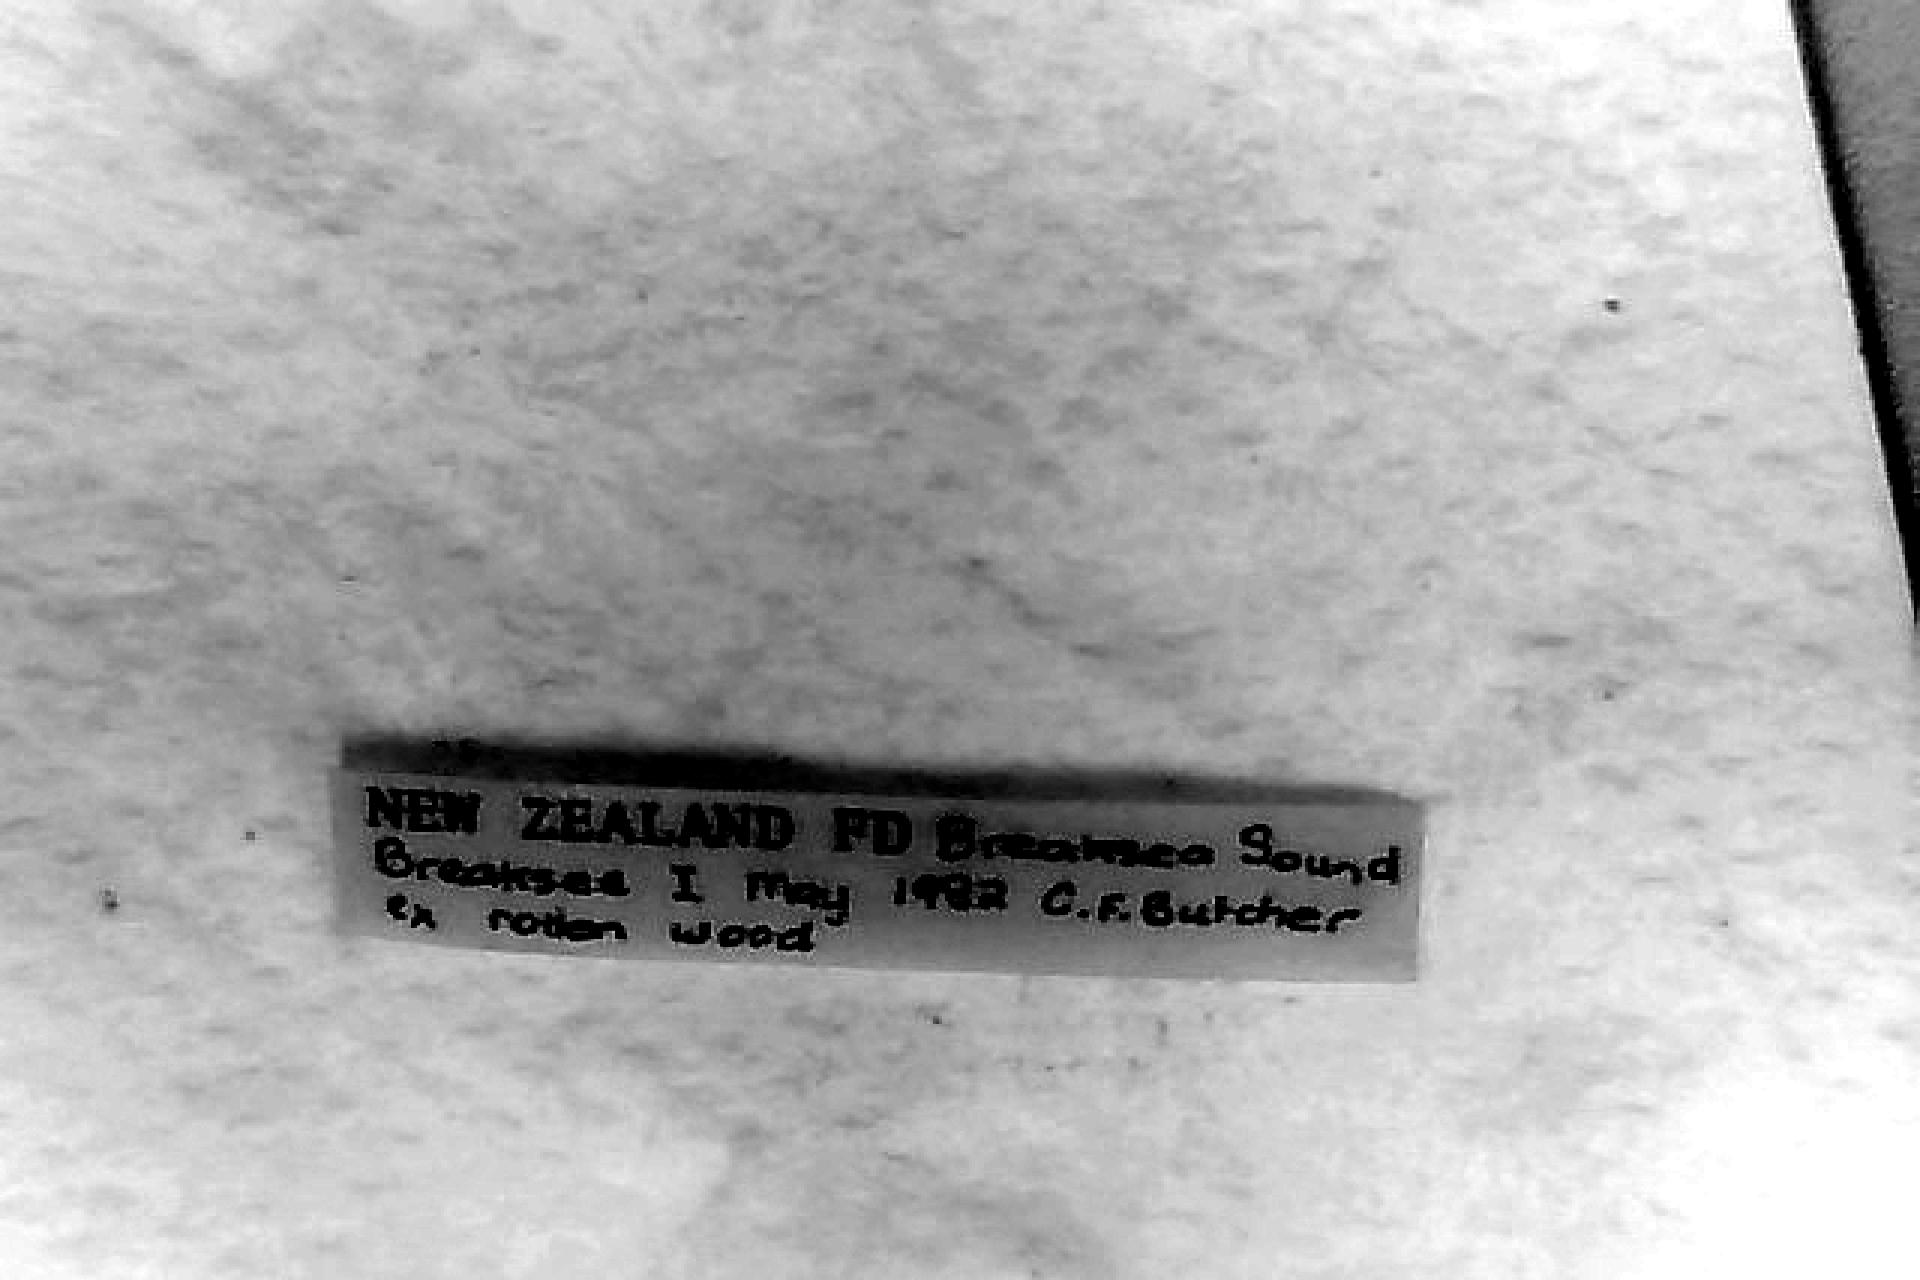 NEW ZEALAND FD Breaksea Sound
Breaksea I May 1982 C.F.Butcher
ex rotten wood